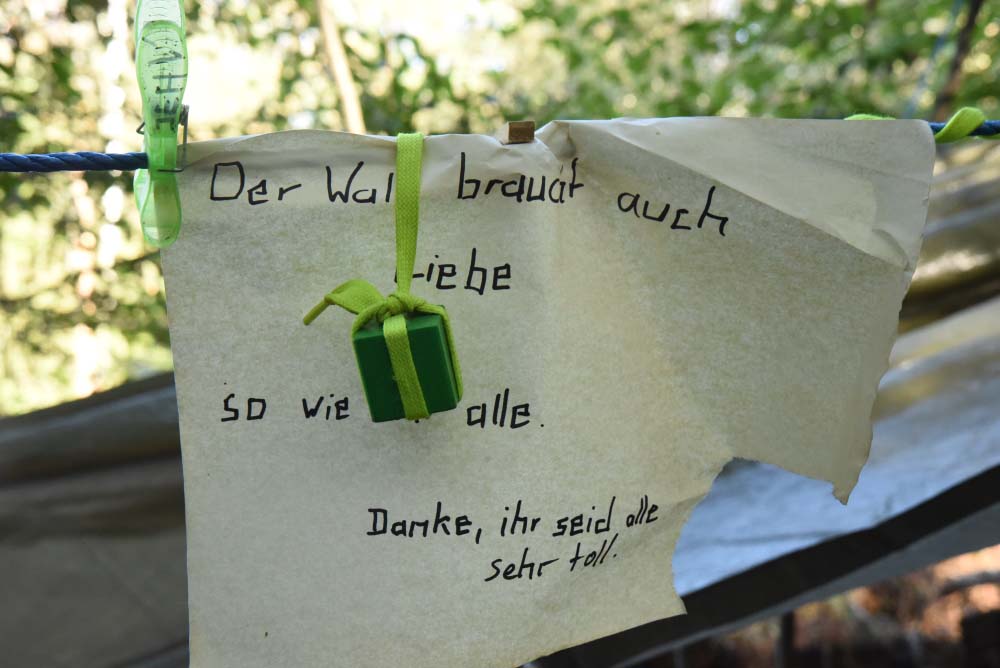 Der Wal braucht auch
Liebe
so wie alle.
Danke, ihr seid alle
sehr toll.